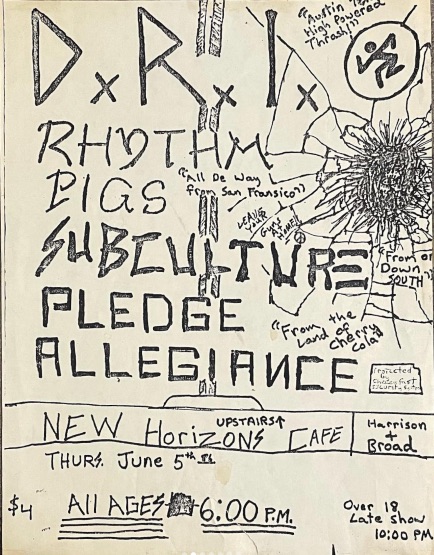 D.R.I.
"Austin Tex
High Powered
Thrash!"
RHYTHM
PIGS
"All De Way
from San Fransico"
LEAVE
Guns
HOME!
SUBCULTURE
"From
Down
SOUTH"
PLEDGE
ALLEGIANCE
"From the
Land of
Cherry
Cola"
Protected
by
NEW HorizoNS CAFE
UPSTAIRS↑
Harrison
+
Broad
THURS. June 5th
$4
All AGES 6:00 P.M.
Over 18
Late show
10:00 PM